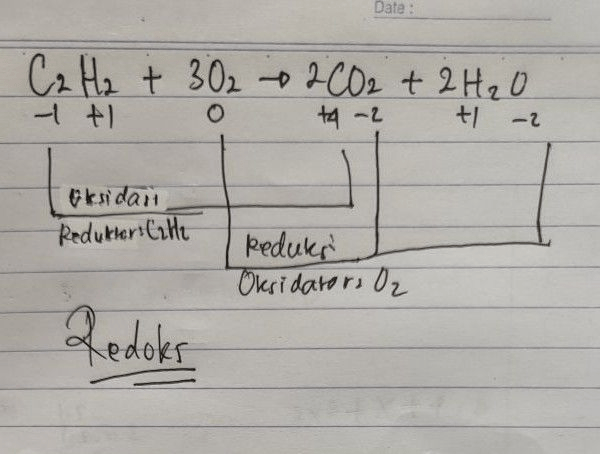 Date :
C₂H₂ + 3O₂ → 2CO₂ + 2H₂O
-1 +1 0 +4 -2 +1 -2
Oksidasi
Reduktor: C₂H₂
Reduksi
Oksidator: O₂
Redoks